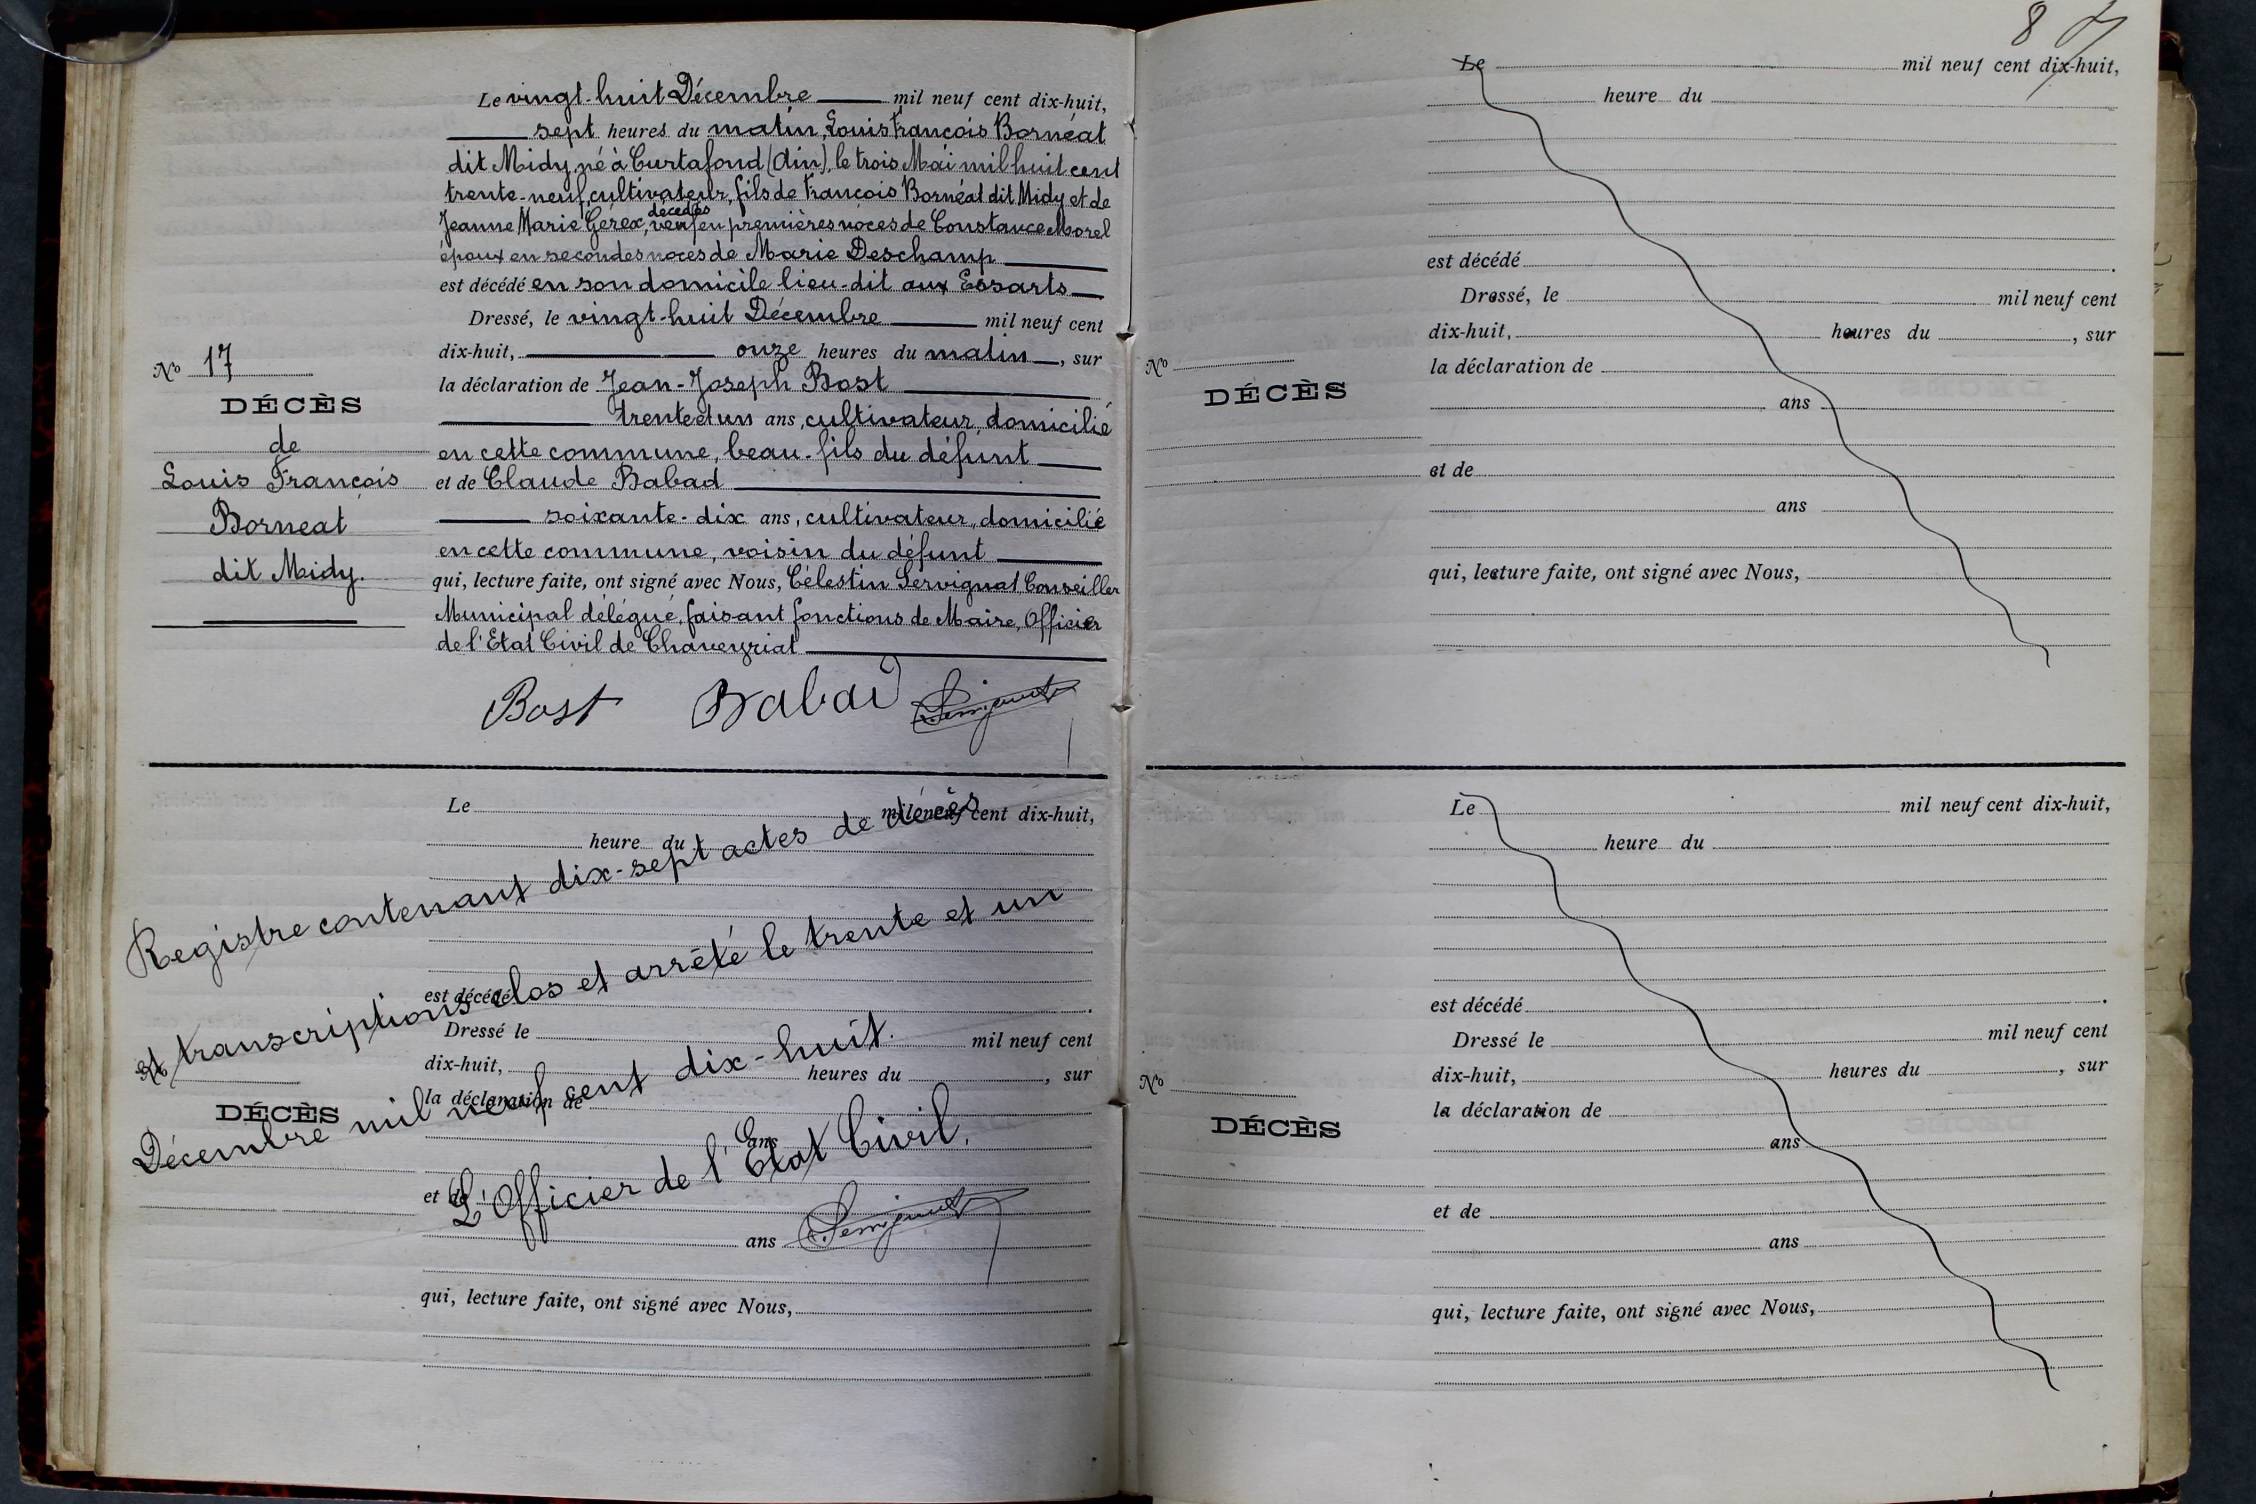 Le vingt-huit Décembre mil neuf cent dix-huit,
sept heures du matin, Louis François Bornéat
dit Midy, né à Curtafond (Ain), le trois Mai mil huit cent
trente-neuf, cultivateur, fils de François Bornéat dit Midy et de
décédés
Jeanne Marie Gérex, veuf en premières noces de Constance Morel
époux en secondes noces de Marie Deschamp
est décédé en son domicile lieu-dit aux Essarts
Dressé, le vingt-huit Décembre mil neuf cent
dix-huit, onze heures du matin, sur
la déclaration de Jean-Joseph Bost
trente et un ans, cultivateur, domicilié
en cette commune, beau-fils du défunt
et de Claude Babad
soixante-dix ans, cultivateur, domicilié
en cette commune, voisin du défunt
qui, lecture faite, ont signé avec Nous, Célestin Servignat Conseiller
Municipal délégué, faisant fonctions de Maire, Officier
de l'Etat Civil de Chaveyriat
Bost Babad Servignat
No 17
DÉCÈS
de
Louis François
Borneat
dit Midy.
Le mil neuf cent dix-huit,
heure du
est décédé .
Dressé le mil neuf cent
dix-huit, heures du , sur
la déclaration de
ans
et de
ans
qui, lecture faite, ont signé avec Nous,
No
DÉCÈS
Registre contenant dix-sept actes de décès
et transcriptions clos et arrêté le trente et un
Décembre mil neuf cent dix-huit.
L'Officier de l'Etat Civil,
Servignat
8
Le mil neuf cent dix-huit,
heure du
est décédé .
Dressé, le mil neuf cent
dix-huit, heures du , sur
la déclaration de
ans
et de
ans
qui, lecture faite, ont signé avec Nous,
No
DÉCÈS
Le mil neuf cent dix-huit,
heure du
est décédé .
Dressé le mil neuf cent
dix-huit, heures du , sur
la déclaration de
ans
et de
ans
qui, lecture faite, ont signé avec Nous,
No
DÉCÈS